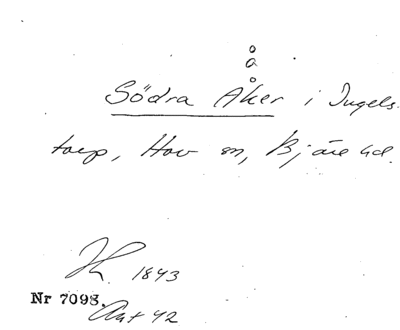 å
Södra Åker i Ingels-
torp, Hov sn, Bjäre hd.
1843
Nr 7098.
Akt 42